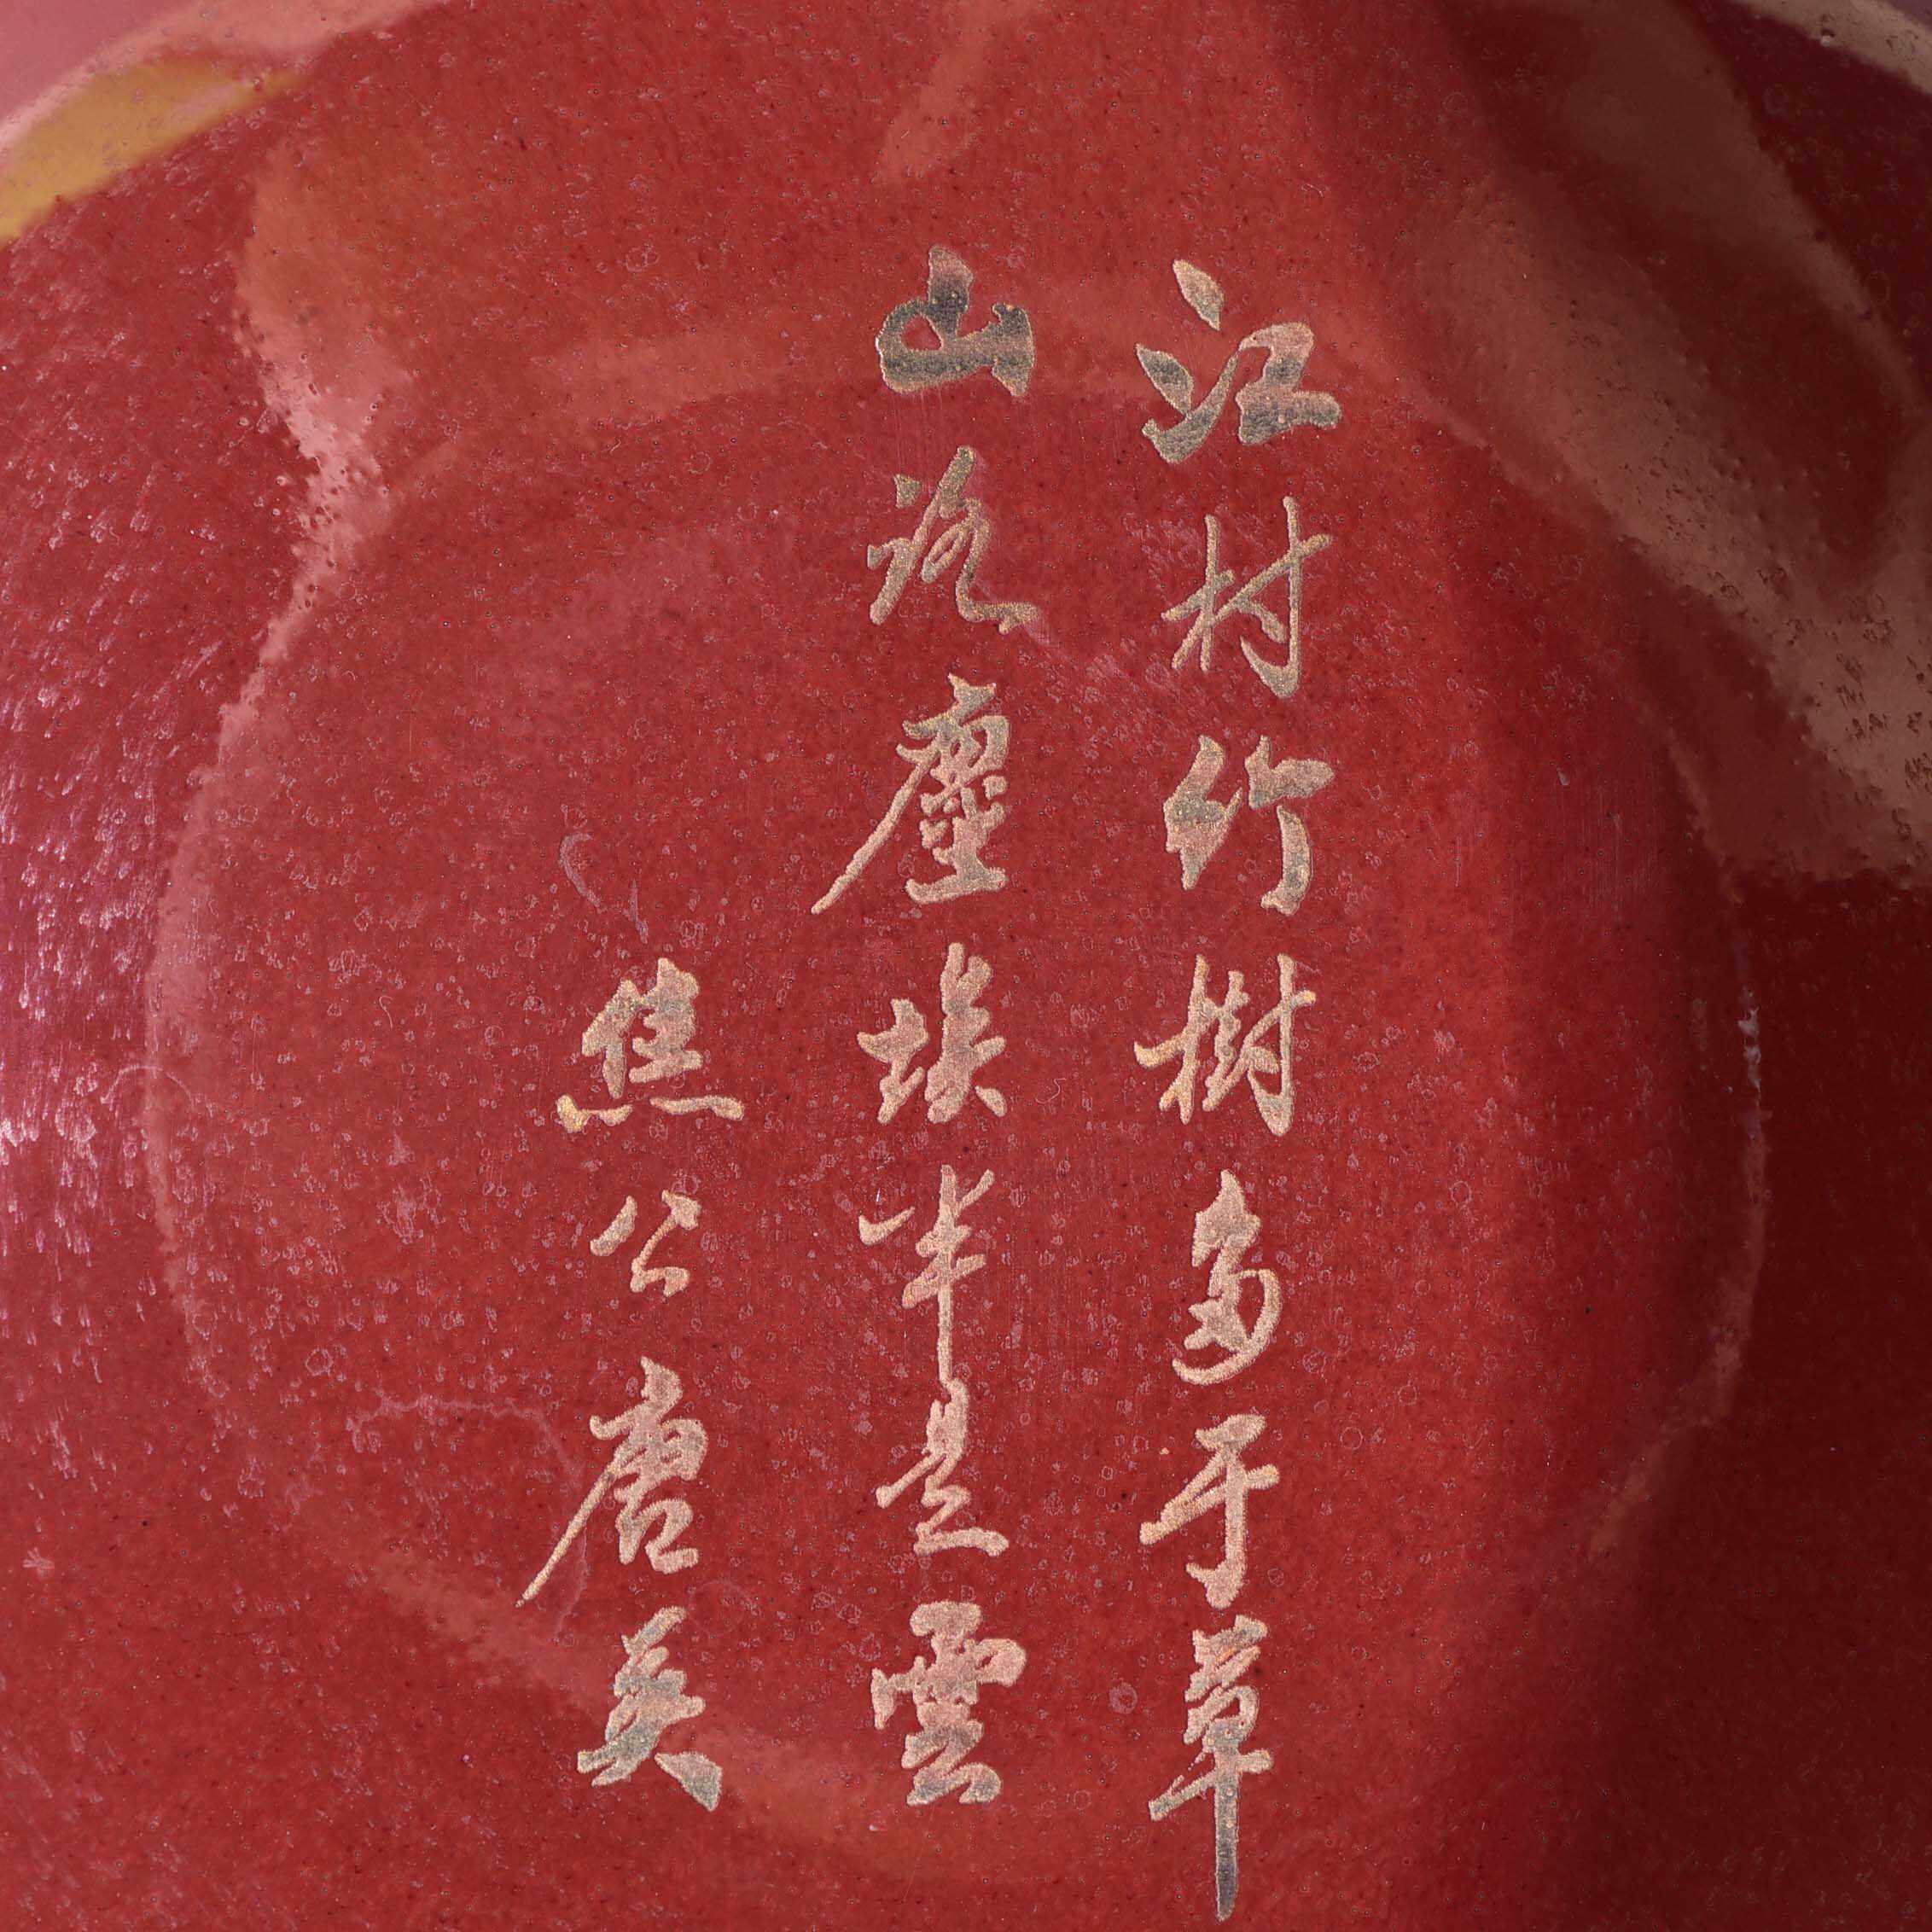 江村竹樹多于草
山路塵埃半是雲
焦公唐英